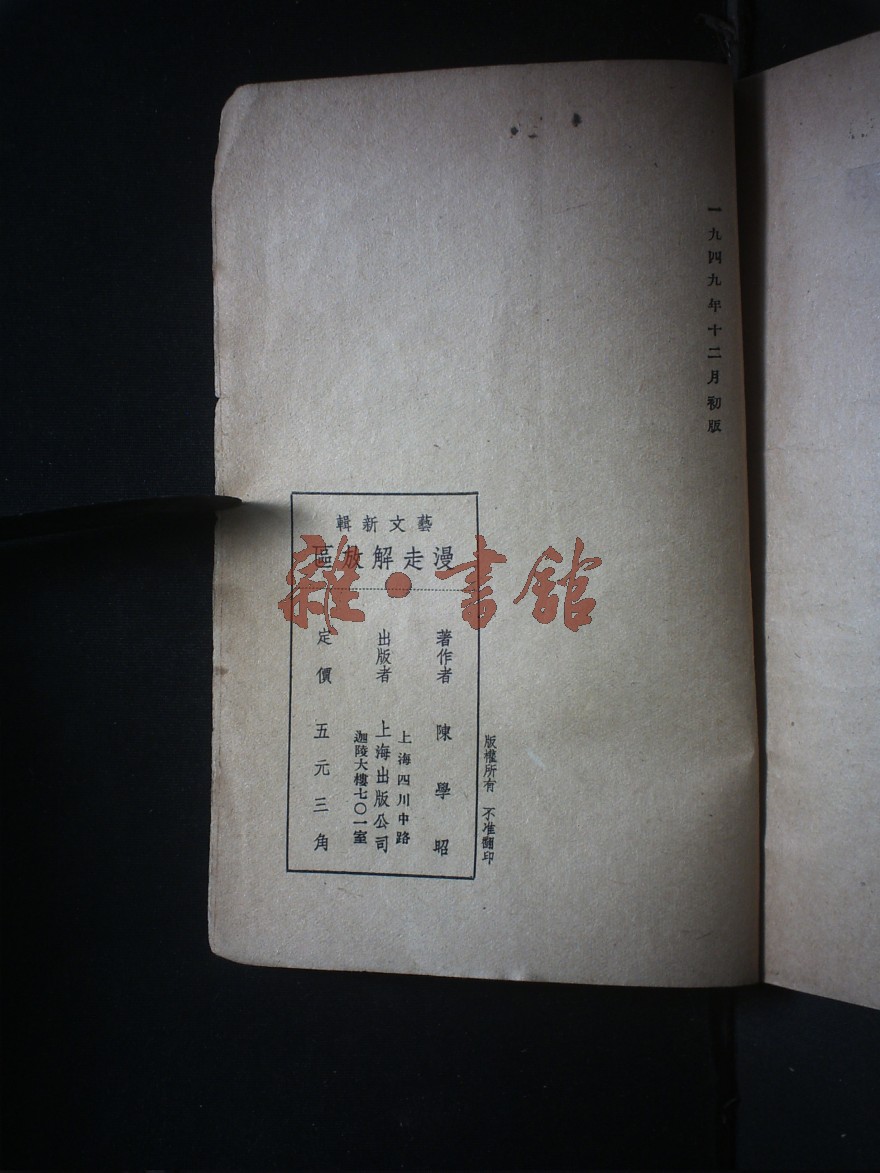 一九四九年十二月初版
藝文新輯
漫走解放區
著作者 陳學昭
出版者 上海出版公司
上海四川中路
迦陵大樓七〇一室
定價 五元三角
版權所有 不准翻印
雜·書館